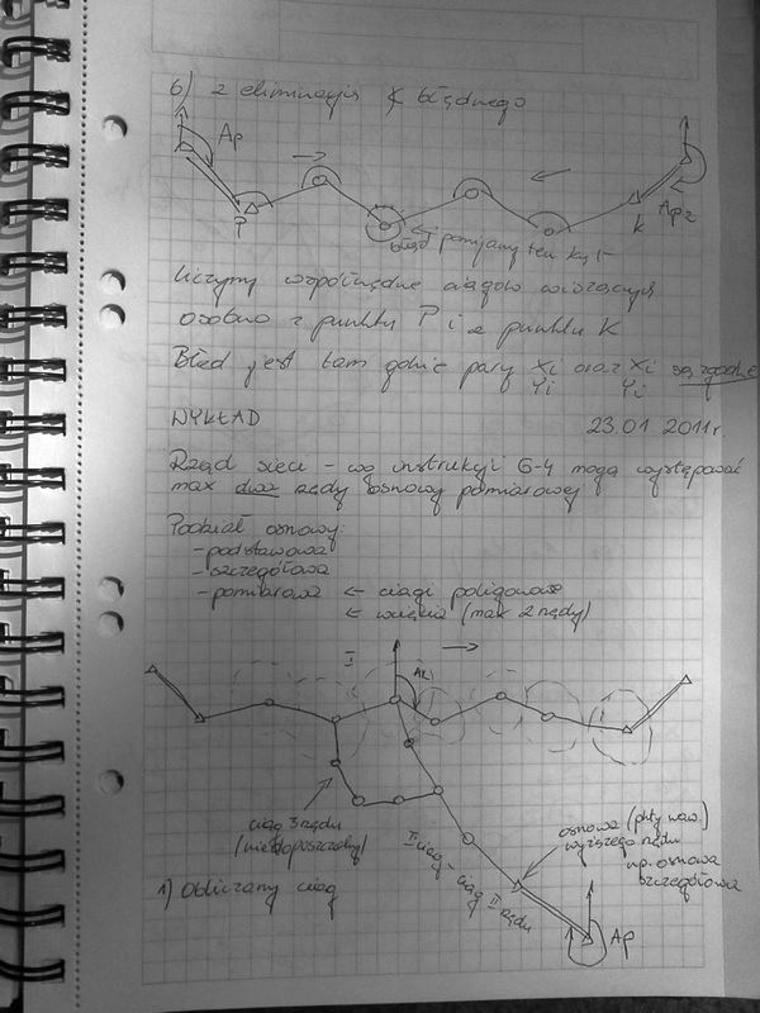 6) z eliminacją ∢ błędnego
Ap
P
błąd pomijamy ten kąt
k
Apz
liczymy współrzędne ciągów wiszących
osobno z punktu P i z punktu K
Błąd jest tam gdzie pary Xi oraz Xi są zgodne
Yi Yi
WYKŁAD 23.01 2011r.
Rząd sieci - wg instrukcji G-4 mogą występować
max dwa rzędy osnowy pomiarowej
Podział osnowy:
- podstawowa
- szczegółowa
- pomiarowa ← ciągi poligonowe
← wcięcia (max 2 rzędy)
I
AK
ciąg 3 rzędu
(niedopuszczalny)
II ciąg - ciąg II rzędu
osnowa
wyższego rzędu
np. osnowa
szczegółowa
1) Obliczamy ciąg
Ap